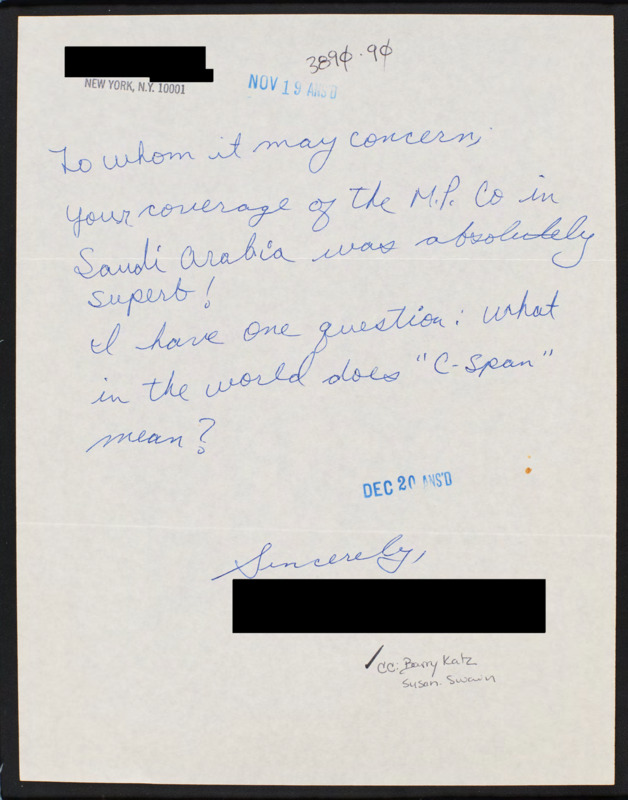 389¢.9¢
NEW YORK, N.Y. 10001
NOV 19 ANS'D
To whom it may concern;
Your coverage of the M.P. Co in
Saudi Arabia was absolutely
superb!
I have one question: what
in the world does "C-Span"
mean?
DEC 20 ANS'D
Sincerely,
CC: Barry Katz
Susan Swain